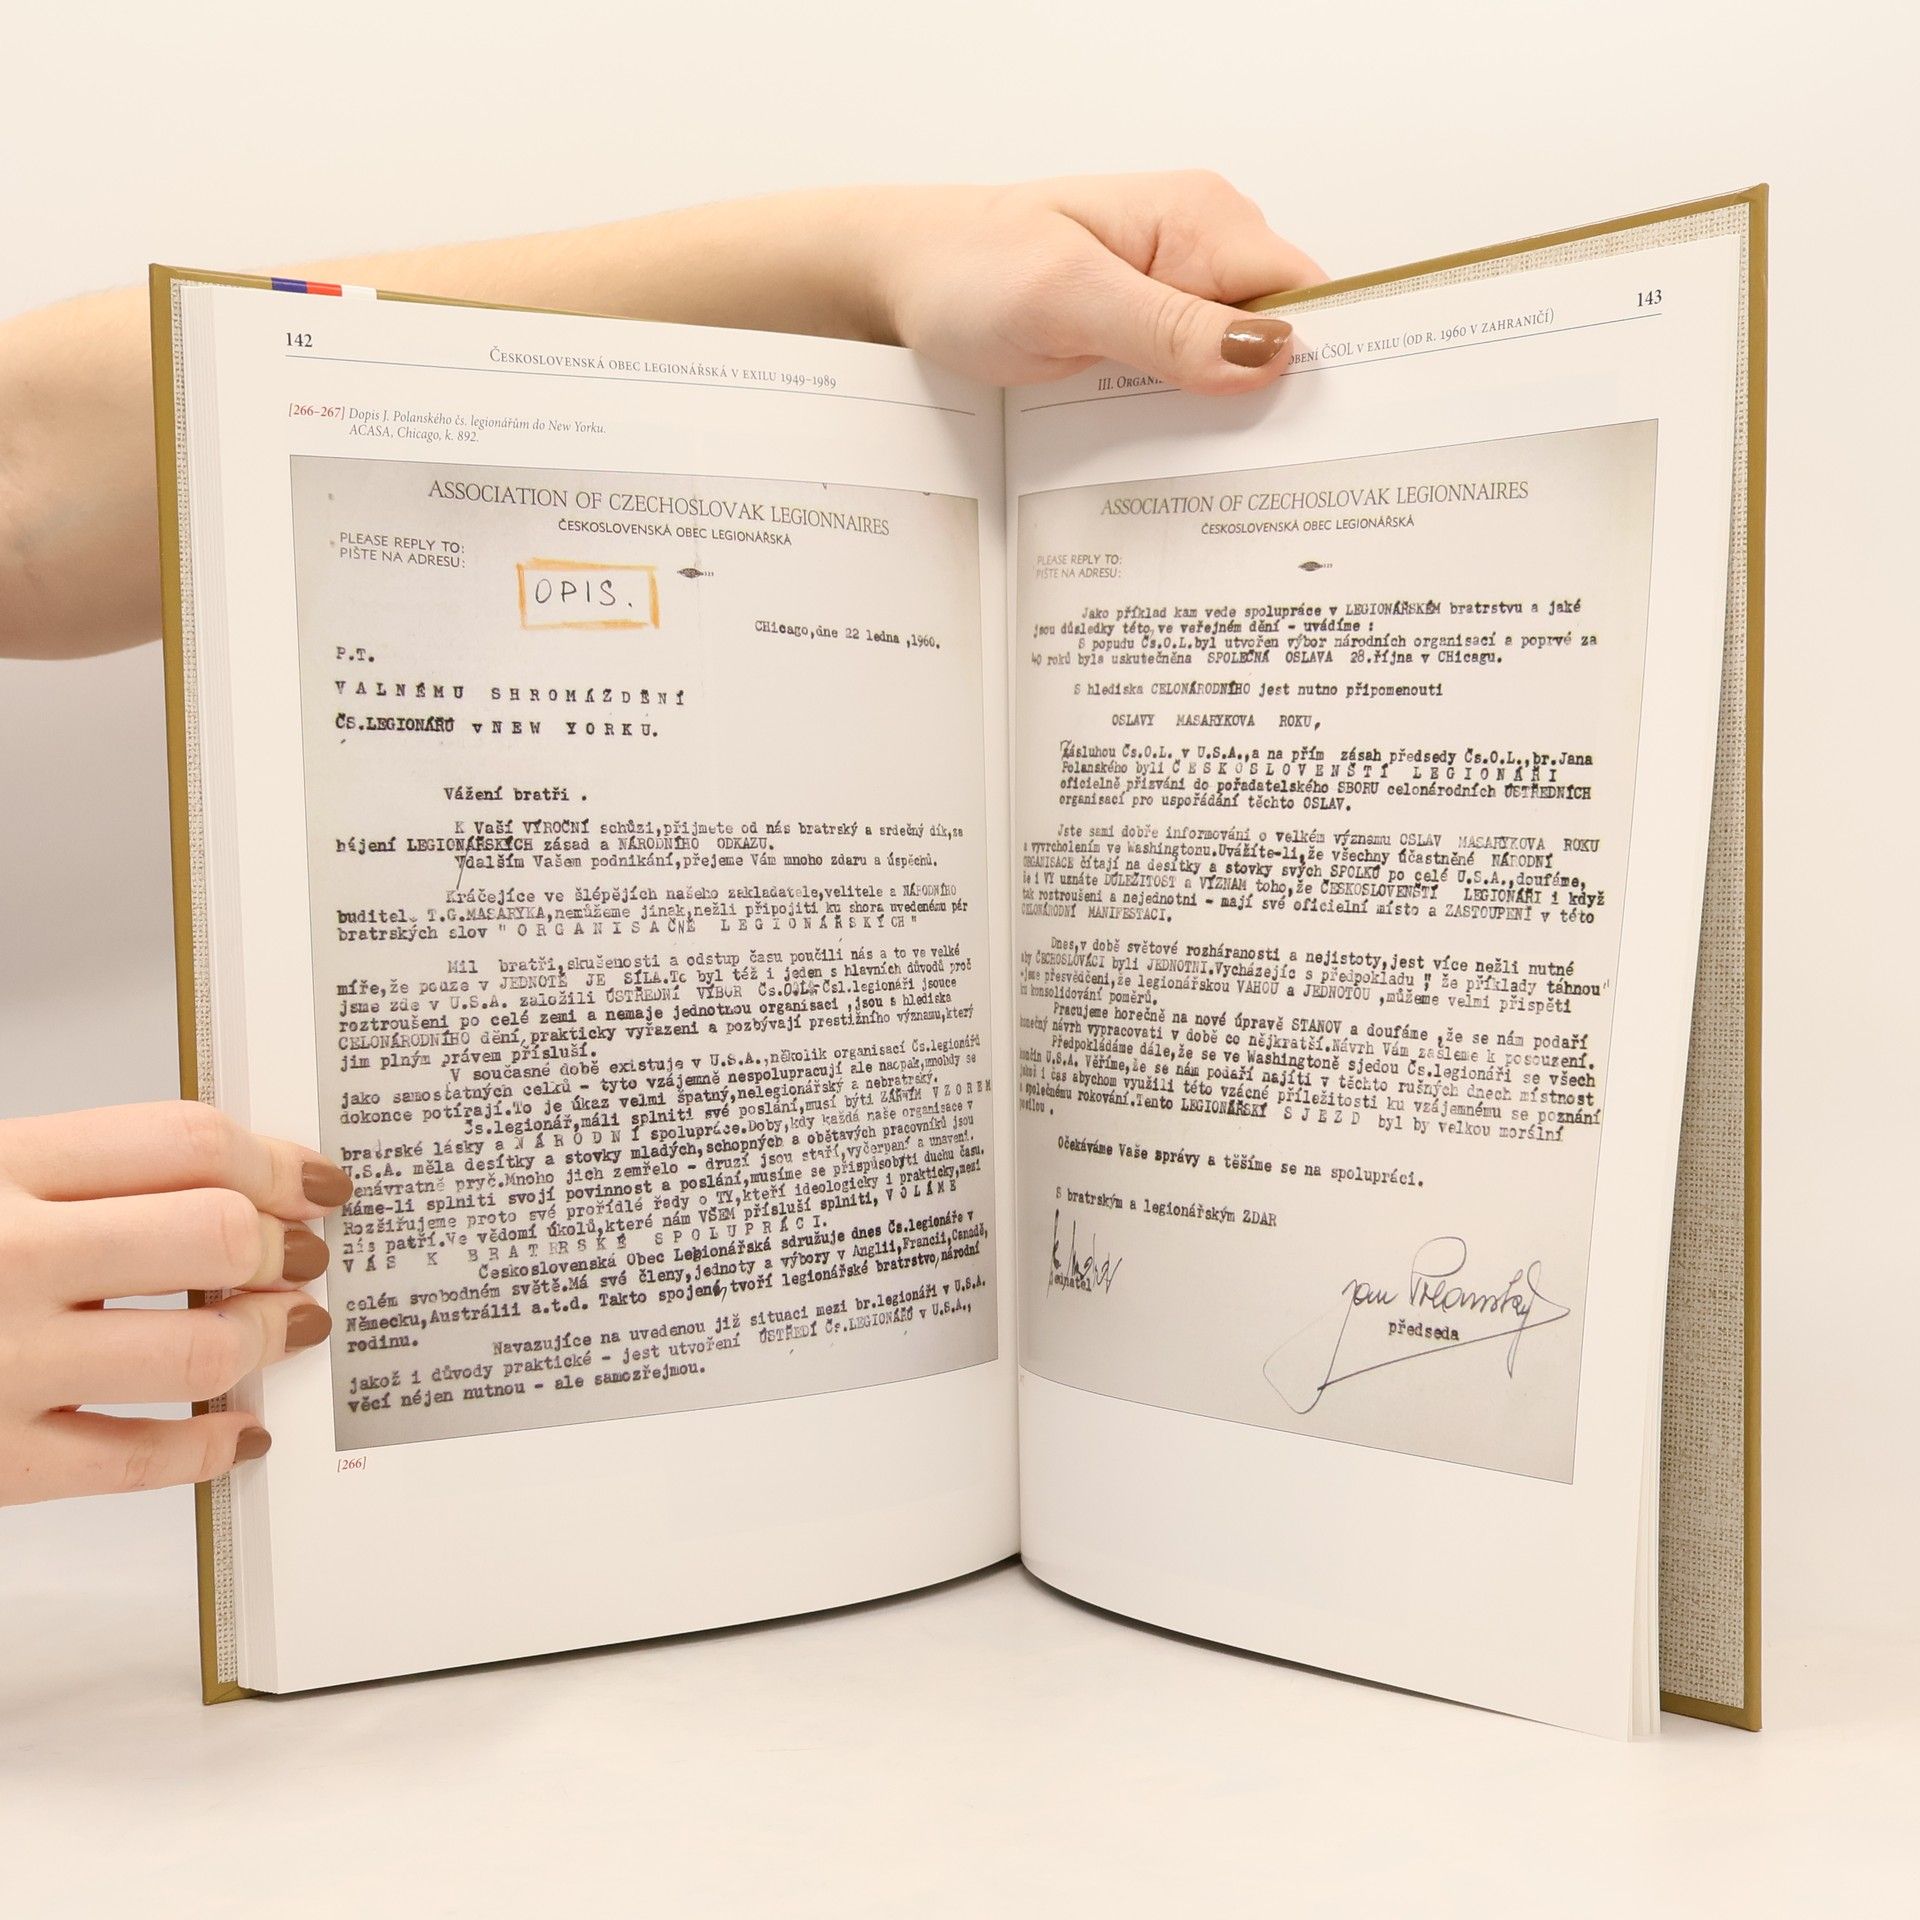 142
Československá obec legionářská v exilu 1949–1989
[266–267] Dopis J. Polanského čs. legionářům do New Yorku.
ACASA, Chicago, k. 892.
ASSOCIATION OF CZECHOSLOVAK LEGIONNAIRES
ČESKOSLOVENSKÁ OBEC LEGIONÁŘSKÁ
PLEASE REPLY TO:
PIŠTE NA ADRESU:
OPIS.
CHicago,dne 22 ledna ,1960.
P.T.
VALNÉMU SHROMÁŽDĚNÍ
ČS.LEGIONÁŘŮ v NEW YORKU.
Vážení bratři .
K Vaší VÝROČNÍ schůzi,přijmete od nás bratrský a srdečný dík,za
hájení LEGIONÁŘSKÝCH zásad a NÁRODNÍHO ODKAZU.
Vdalším Vašem podnikání,přejeme Vám mnoho zdaru a úspěchů.
Kráčejíce ve šlépějích našeho zakladatele,velitele a NÁRODNÍHO
buditele T.G.MASARYKA,nemůžeme jinak,nežli připojiti ku shora uvedenému pár
bratrských slov " ORGANISAČNĚ LEGIONÁŘSKÝCH"
Mil bratři,skušenosti a odstup času poučili nás a to ve velké
míře,že pouze v JEDNOTĚ JE SÍLA.To byl též i jeden s hlavních důvodů proč
jsme zde v U.S.A. založili ÚSTŘEDNÍ VÝBOR Čs.O.L. Čsl.legionáři jsouce
roztroušeni po celé zemi a nemaje jednotnou organisaci ,jsou s hlediska
CELONÁRODNÍHO dění,prakticky vyřazeni a pozbývají prestižního významu,který
jim plným právem přísluší.
V současné době existuje v U.S.A.,několik organisací Čs.legionářů
jako samostatných celků – tyto vzájemně nespolupracují ale naopak,mnohdy se
dokonce potírají.To je úkaz velmi špatný,nelegionářský a nebratrský.
Čs.legionář,máli splniti své poslání,musí býti ZÁŘNÝM VZOREM
bratrské lásky a NÁRODNÍ spolupráce.Doby,kdy každá naše organisace v
U.S.A. měla desítky a stovky mladých,schopných a obětavých pracovníků jsou
nenávratně pryč.Mnoho jich zemřelo – druzí jsou staří,vyčerpaní a unavení.
Máme-li splniti svojí povinnost a poslání,musíme se přispůsobyti duchu času.
Rozšiřujeme proto své prořídlé ředy o TY,kteří ideologicky i prakticky,mezi
nás patří.Ve vědomí úkolů,které nám VŠEM přísluší splniti, VOLÁME
VÁS K BRATRSKÉ SPOLUPRÁCI.
Československá Obec Legionářská sdružuje dnes Čs.legionáře v
celém svobodném světě.Má své členy,jednoty a výbory v Anglii,Francii,Canadě,
Německu,Austrálii a.t.d. Takto spojené,tvoří legionářské bratrstvo,národní
rodinu.
Navazujíce na uvedenou již situaci mezi br.legionáři v U.S.A.
jakož i důvody praktické – jest utvoření ÚSTŘEDÍ Čs.LEGIONÁŘŮ v U.S.A.,
věcí néjen nutnou – ale samozřejmou.
[266]
143
III. Organi obení ČSOL v exilu (od r. 1960 v zahraničí)
ASSOCIATION OF CZECHOSLOVAK LEGIONNAIRES
ČESKOSLOVENSKÁ OBEC LEGIONÁŘSKÁ
PLEASE REPLY TO:
PIŠTE NA ADRESU:
Jako příklad kam vede spolupráce v LEGIONÁŘSKÉM bratrstvu a jaké
jsou důsledky této,ve veřejném dění – uvádíme :
S popudu Čs.O.L.byl utvořen výbor národních organisací a poprvé za
40 roků byla uskutečněna SPOLEČNÁ OSLAVA 28.října v CHicagu.
S hlediska CELONÁRODNÍHO jest nutno připomenouti
OSLAVY MASARYKOVA ROKU,
Zásluhou Čs.O.L. v U.S.A.,a na přím zásah předsedy Čs.O.L.,br.Jana
Polanského byli ČESKOSLOVENŠTÍ LEGIONÁŘI
oficielně přizváni do pořadatelského SBORU celonárodních ÚSTŘEDNÍCH
organisací pro uspořádání těchto OSLAV.
Jste sami dobře informováni o velkém významu OSLAV MASARYKOVA ROKU
s vyvrcholením ve Washingtonu.Uvážíte-li,že všechny účastněné NÁRODNÍ
ORGANISACE čítají na desítky a stovky svých SPOLKŮ po celé U.S.A.,doufáme,
že i VY uznáte DŮLEŽITOST a VÝZNAM toho,že ČESKOSLOVENŠTÍ LEGIONÁŘI i když
tak roztroušeni a nejednotni – mají své oficielní místo a ZASTOUPENÍ v této
CELONÁRODNÍ MANIFESTACI.
Dnes,v době světové rozháranosti a nejistoty,jest více nežli nutné
aby ČECHOSLOVÁCI byli JEDNOTNI.Vycházejíc s předpokladu ", že příklady táhnou"
-jsme přesvědčeni,že legionářskou VAHOU a JEDNOTOU ,můžeme velmi přispěti
ku konsolidování poměrů.
Pracujeme horečně na nové úpravě STANOV a doufáme ,že se nám podaří
konečný návrh vypracovati v době co nějkratší.Návrh Vám zašleme k posouzení.
Předpokládáme dále,že se ve Washingtoně sjedou Čs.legionáři se všech
končin U.S.A. Věříme,že se nám podaří najíti v těchto rušných dnech místnost
jakož i čas abychom využili této vzácné příležitosti ku vzájemnému se poznání
a společnému rokování.Tento LEGIONÁŘSKÝ SJEZD byl by velkou morální
posilou .
Očekáváme Vaše zprávy a těšíme se na spolupráci.
S bratrským a legionářským ZDAR
jednatel
Jan Polanský
předseda